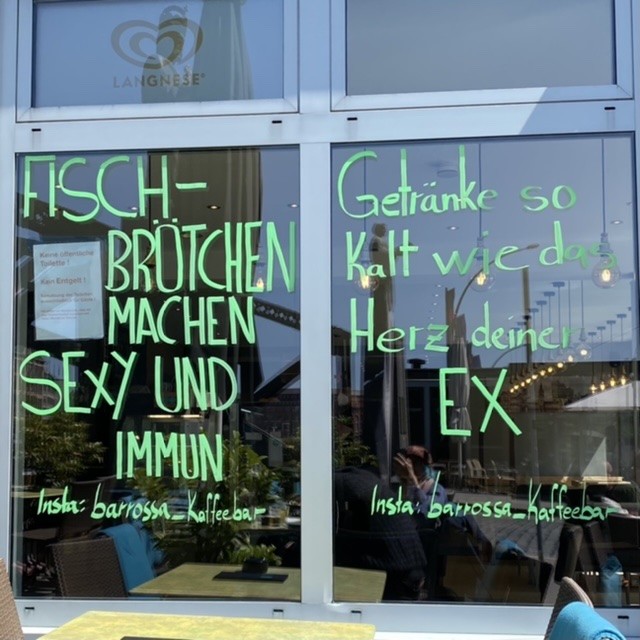 LANGNESE
FISCH-
BRÖTCHEN
MACHEN
SEXY UND
IMMUN
Insta: barrossa_Kaffeebar
Keine öffentliche
Toilette !
Kein Entgelt !
Getränke so
Kalt wie das
Herz deiner
EX
Insta: barrossa_Kaffeebar